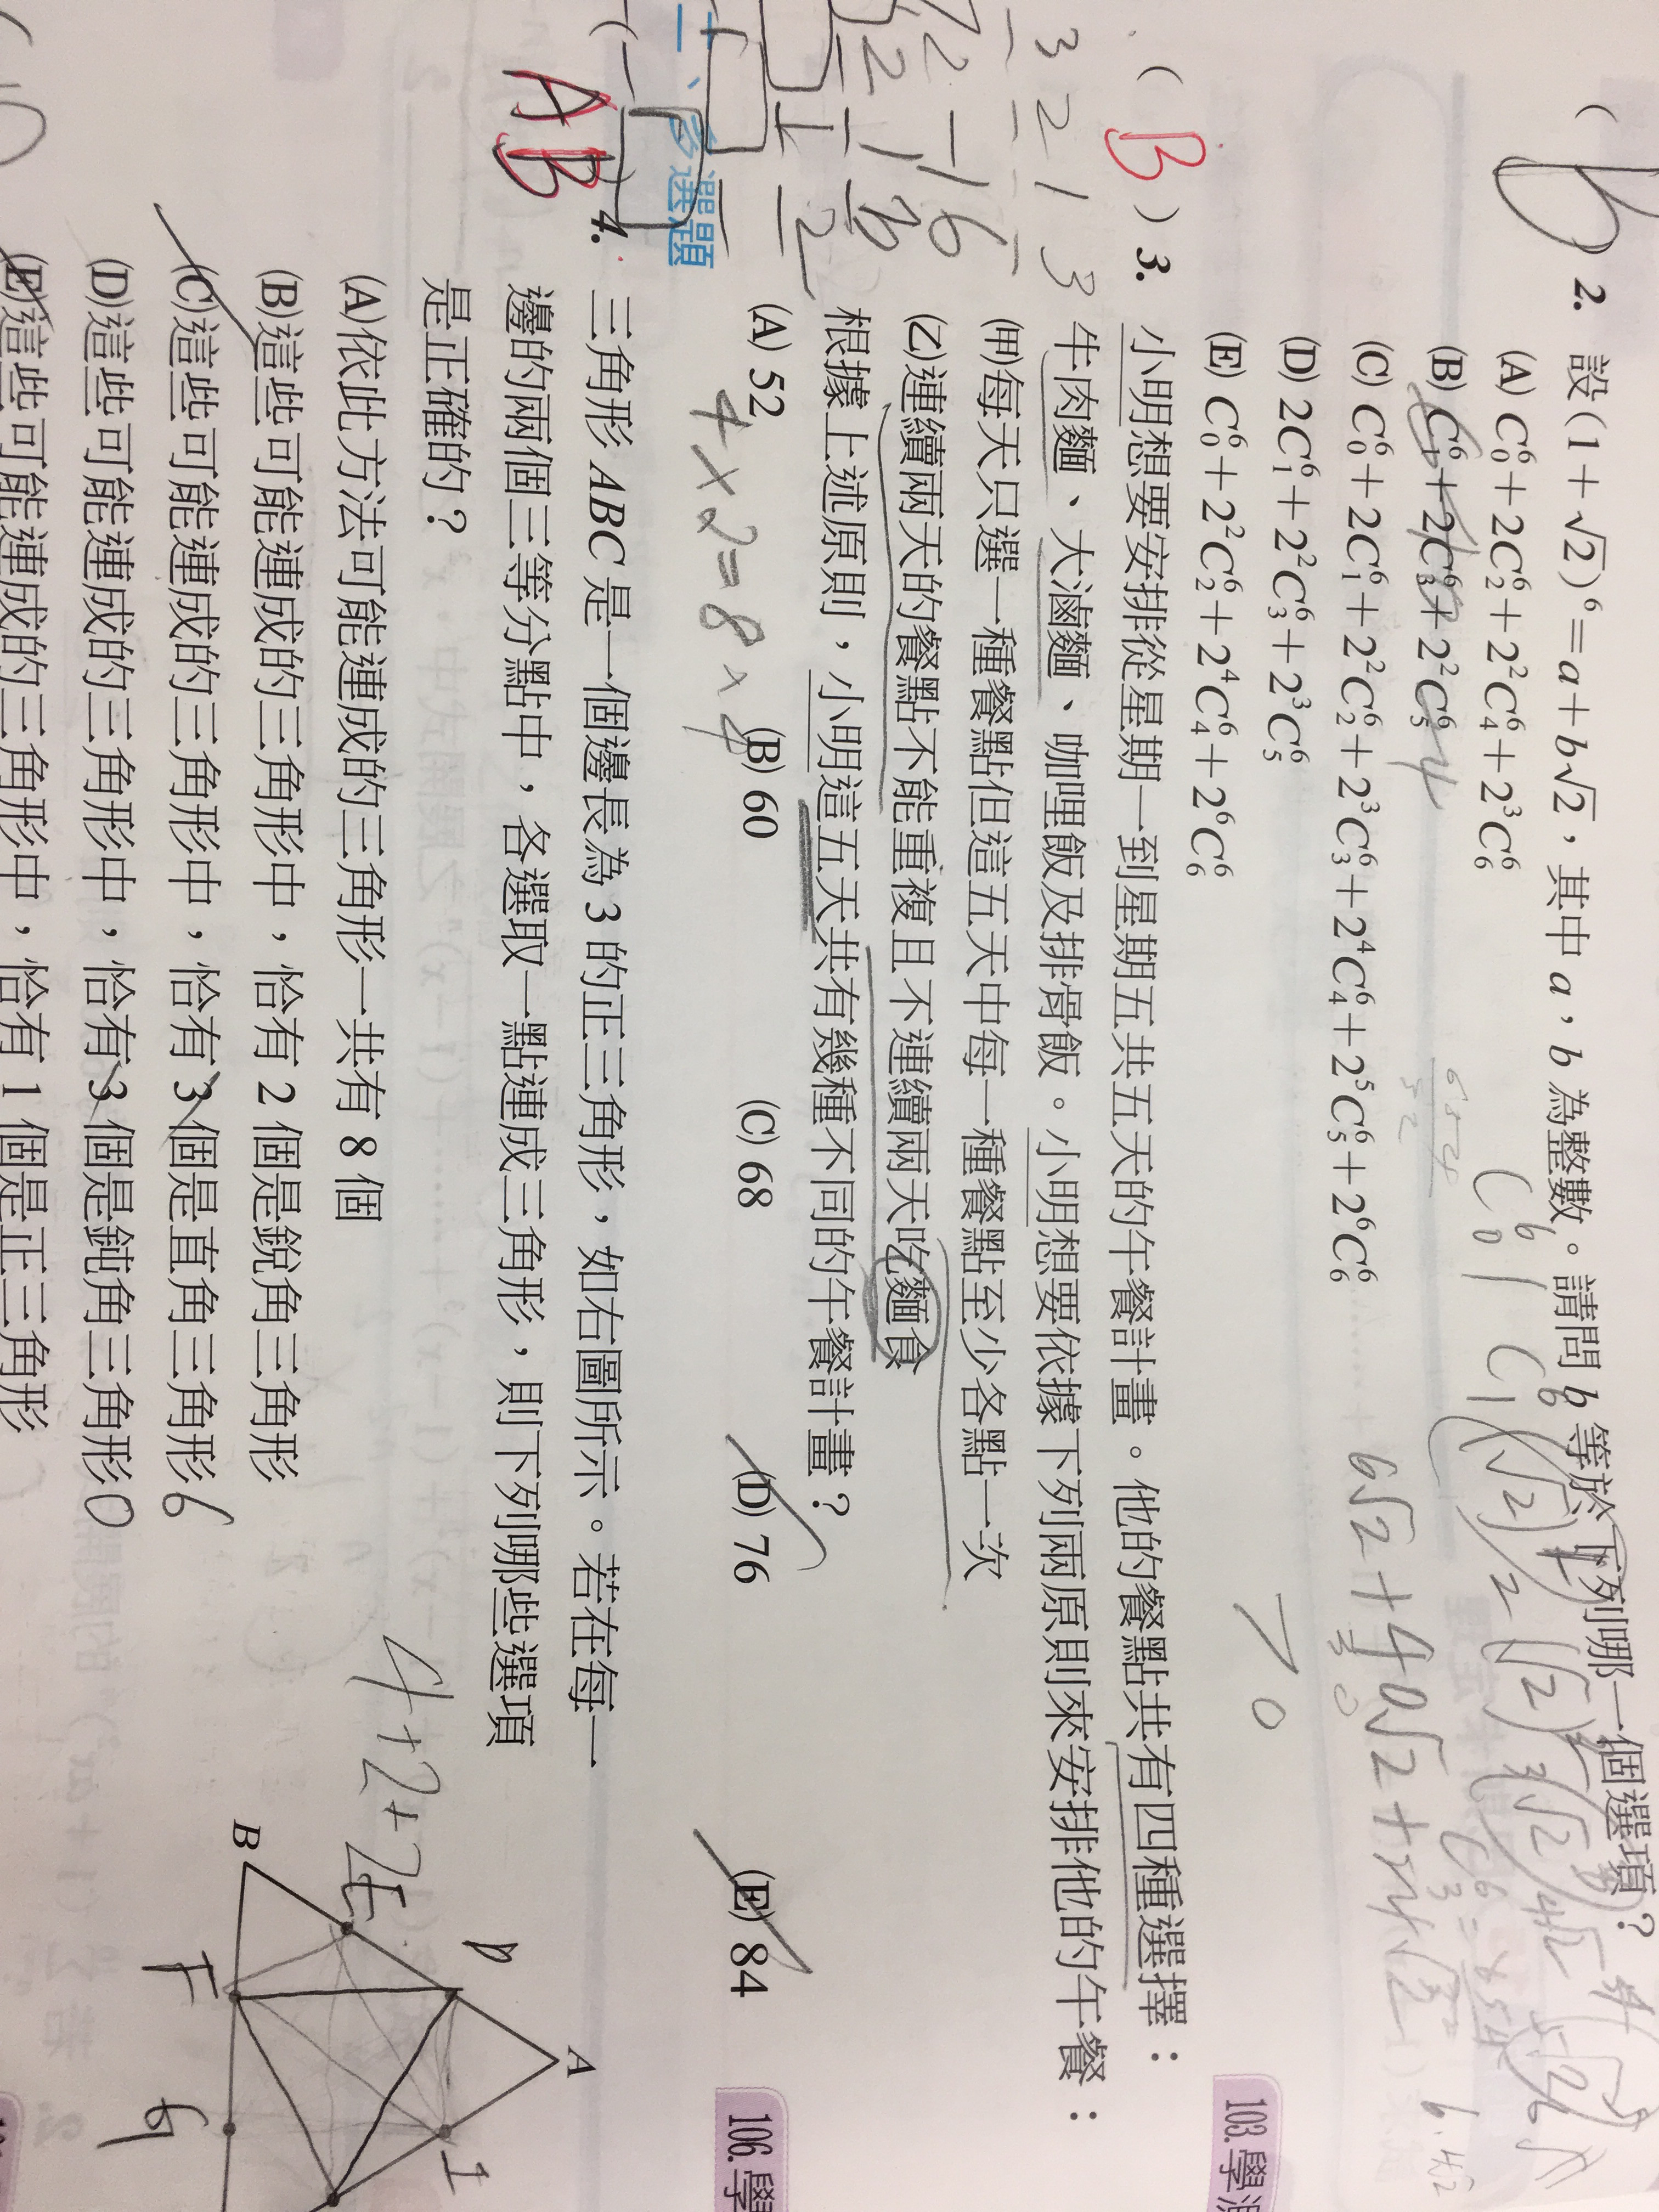 ( B ) 2. 設(1+√2)⁶=a+b√2，其中 a，b 為整數。請問 b 等於下列哪一個選項？
(A) C⁶₀+2C⁶₂+2²C⁶₄+2³C⁶₆
(B) C⁶₁+2C⁶₃+2²C⁶₅
(C) C⁶₀+2C⁶₁+2²C⁶₂+2³C⁶₃+2⁴C⁶₄+2⁵C⁶₅+2⁶C⁶₆
(D) 2C⁶₁+2²C⁶₃+2³C⁶₅
(E) C⁶₀+2²C⁶₂+2⁴C⁶₄+2⁶C⁶₆
70
103.學測
( B ) 3. 小明想要安排從星期一到星期五共五天的午餐計畫。他的餐點共有四種選擇：
牛肉麵、大滷麵、咖哩飯及排骨飯。小明想要依據下列兩原則來安排他的午餐：
(甲)每天只選一種餐點但這五天中每一種餐點至少各點一次
(乙)連續兩天的餐點不能重複且不連續兩天吃麵食
根據上述原則，小明這五天共有幾種不同的午餐計畫？
(A) 52 (B) 60 (C) 68 (D) 76 (E) 84
3 2 1 3
4×2=8×4
106.學
二、多選題
( AB ) 4. 三角形 ABC 是一個邊長為 3 的正三角形，如右圖所示。若在每一
邊的兩個三等分點中，各選取一點連成三角形，則下列哪些選項
是正確的？
(A)依此方法可能連成的三角形一共有 8 個
(B)這些可能連成的三角形中，恰有 2 個是銳角三角形
(C)這些可能連成的三角形中，恰有 3 個是直角三角形 6
(D)這些可能連成的三角形中，恰有 3 個是鈍角三角形 0
(E)這些可能連成的三角形中，恰有 1 個是正三角形
4+2+2
A
D
I
E
B
F
G